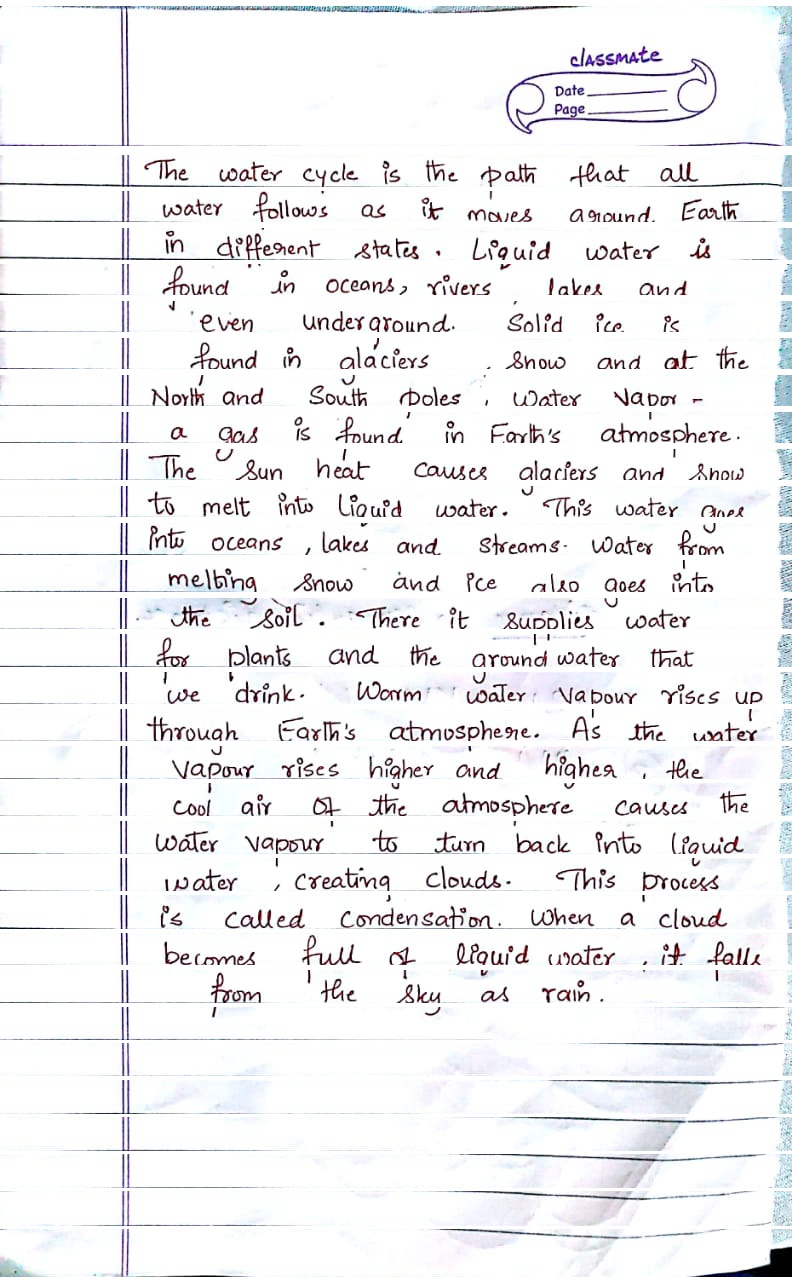 classmate
Date
Page
The water cycle is the path that all
water follows as it moves around. Earth
in different states. Liquid water is
found in oceans, rivers lakes and
even underground. Solid ice is
found in glaciers , Snow and at the
North and South poles , Water Vapor -
a gas is found in Earth's atmosphere.
The Sun heat causes glaciers and snow
to melt into liquid water. This water goes
into oceans , lakes and streams. Water from
melting snow and ice also goes into
the soil. There it supplies water
for plants and the ground water that
we drink. Warm water vapour rises up
through Earth's atmosphere. As the water
vapour rises higher and higher , the
cool air of the atmosphere causes the
water vapour to turn back into liquid
water , creating clouds. This process
is called condensation. When a cloud
becomes full of liquid water , it falls
from the sky as rain.